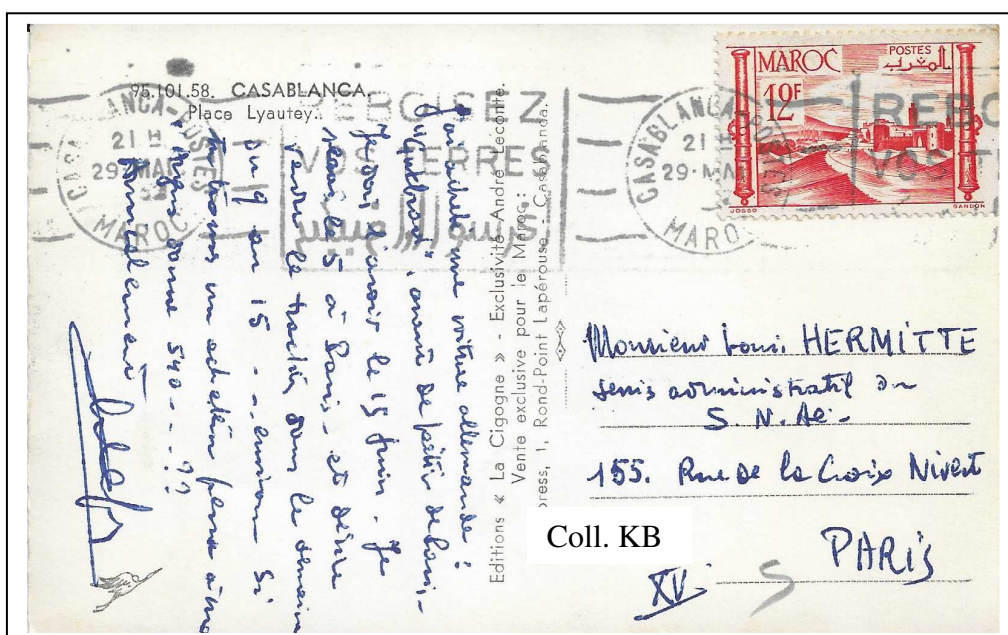 95.101.58. CASABLANCA.
Place Lyautey.
CASABLANCA-POSTES
21 H
29-MAI
MAROC
REBOISEZ
VOS TERRES
MAROC
POSTES
المغرب
12F
JOSSO
GANDON
CASABLANCA-POSTES
21 H
29-MAI
MAROC
REBO
VOS T
une voiture allemande :
avant de partir de Paris.
Je dois l'avoir le 15 Juin. Je
serai le 5 à Paris - et désire
vendre la traction dans la semaine
du 9 au 15 - environ Si
tu trouves un acheteur pense à moi
Argus donne 540 - - ??
Amicalement
Editions « La Cigogne » - Exclusivité André Leconte
Vente exclusive pour le Maroc :
press, 1, Rond-Point Lapérouse - Casablanca.
Monsieur Louis HERMITTE
administratif du
S. N.
155. Rue de la Croix Nivert
PARIS
XV
5
Coll. KB